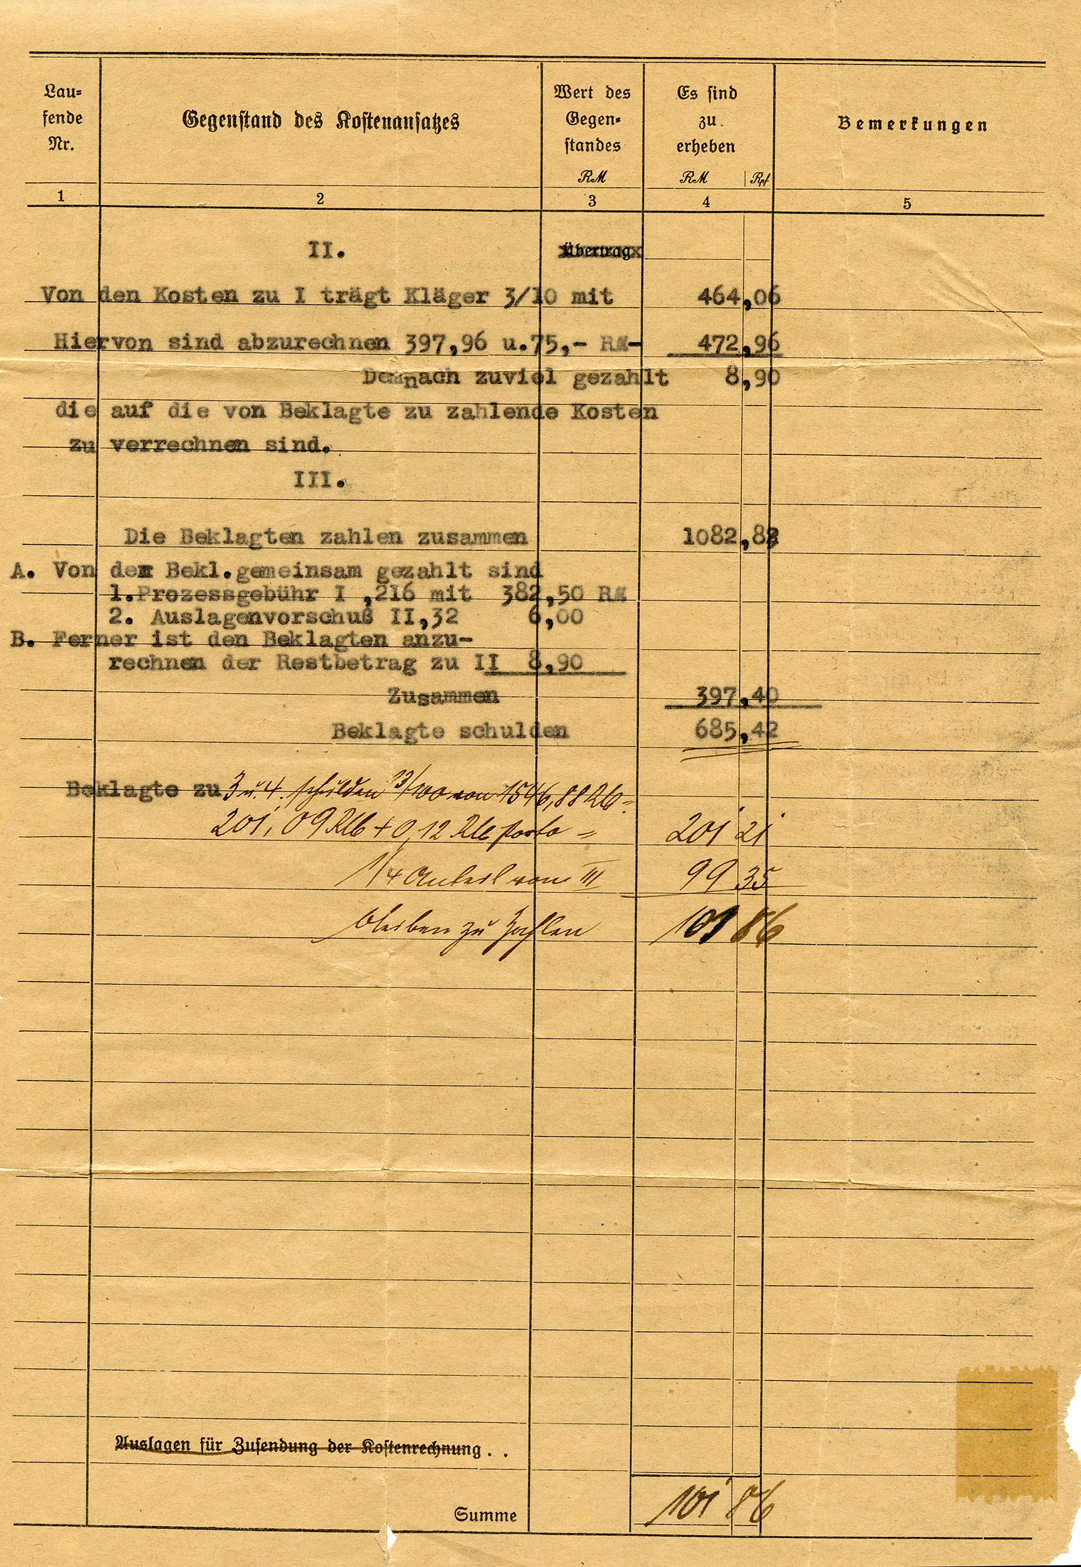 Lau=
fende
Nr.
Gegenstand des Kostenansatzes
Wert des
Gegen=
standes
RM
Es sind
zu
erheben
RM Rpf
Bemerkungen
1 2 3 4 5
II. Übertrag
Von den Kosten zu I trägt Kläger 3/10 mit 464,06
Hiervon sind abzurechnen 397,96 u.75,- RM- 472,96
Demnach zuviel gezahlt 8,90
die auf die von Beklagte zu zahlende Kosten
zu verrechnen sind.
III.
Die Beklagten zahlen zusammen 1082,82
A. Von der Bekl.gemeinsam gezahlt sind
1.Prozessgebühr I ,216 mit 382,50 RM
2. Auslagenvorschuß II,32 6,00
B. Ferner ist den Beklagten anzu-
rechnen der Restbetrag zu II 8,90
Zusammen 397,40
Beklagte schulden 685,42
Beklagte zu 3 u. 4. schulden 13/100 von 1546,88 RM =
201,09 RM + 0,12 RM Porto = 201 21
1/4 Anteil von III 99 35
bleiben zu zahlen 101 86
Auslagen für Zusendung der Kostenrechnung . .
Summe 101 86